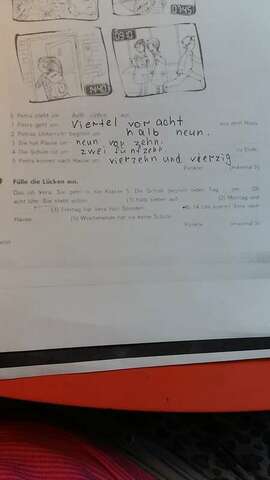 07:45
09:10
14:40
1 Petra steht um
1 Petra geht um viertel vor acht aus dem Haus.
2 Petras Unterricht beginnt um halb neun.
3 Sie hat Pause um neun vor zehn.
4 Die Schule ist um zwei fünfzehn zu Ende.
5 Petra kommt nach Hause um vierzehn und vierzig
Punkte
Fülle die Lücken aus.
Das ist Vera. Sie geht in die Klasse 5. Die Schule beginnt jeden Tag
acht Uhr. Sie steht schon (1) halb sieben auf. (2) Montag und
(3) Freitag hat Vera fünf Stunden. 14 Uhr kommt Vera nach
Hause. (5) Wochenende hat sie keine Schule.
Punkte